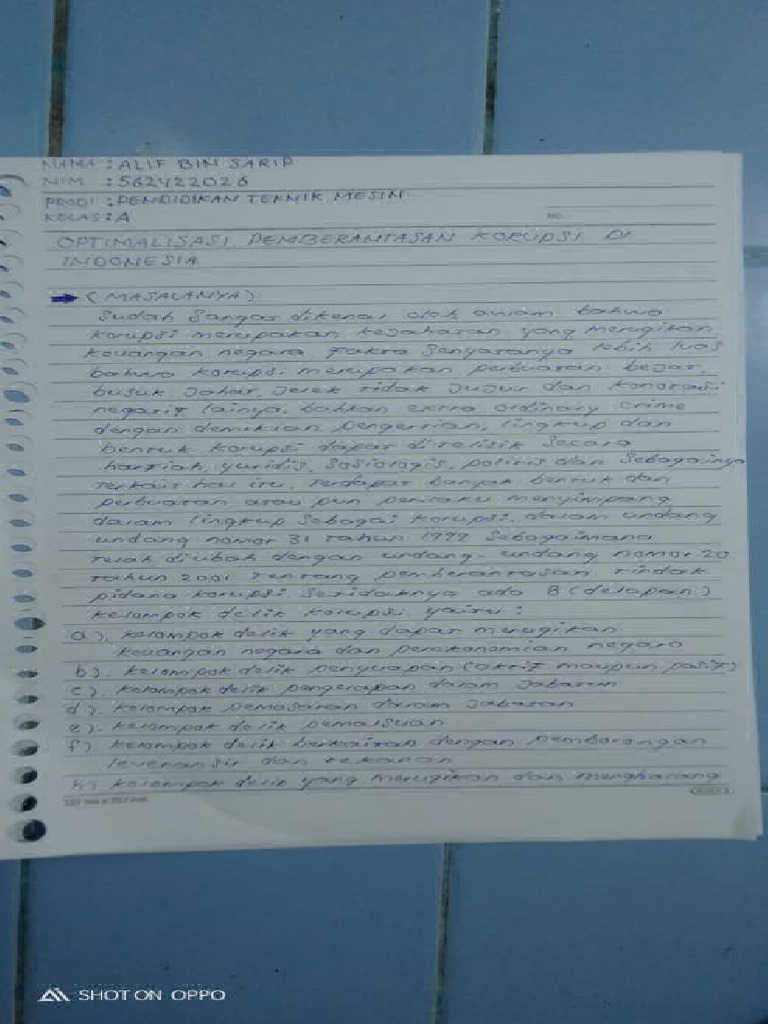 NAMA : ALIF BIN SARIP
NIM : 562422026
PRODI : PENDIDIKAN TEKNIK MESIN
KELAS : A
NO.
OPTIMALISASI PEMBERANTASAN KORUPSI DI
INDONESIA
(MASALANYA)
Sudah Sangat dikenal oleh awam bahwa
korupsi merupakan kejahatan yang merugikan
keuangan negara Fakta Senyatanya lebih luas
bahwa korupsi merupakan perbuatan bejat,
busuk Jahat, Jelek tidak Jujur dan konotasi
negatif lainya. bahkan extra ordinary crime
dengan demikian pengertian, lingkup dan
bentuk korupsi dapat ditelisik Secara
harfiah, yuridis, Sosiologis, politis dan Sebagainya
terkait hal itu, terdapat banyak bentuk dan
perbuatan atau pun perilaku menyimpang
dalam lingkup Sebagai korupsi. dalam undang
undang nomor 31 tahun 1999 Sebagaimana
telah diubah dengan undang-undang nomor 20
tahun 2001 tentang pemberantasan tindak
pidana korupsi. Setidaknya ada 8 (delapan)
kelompok delik korupsi yaitu :
a). kelompok delik yang dapat merugikan
keuangan negara dan perekonomian negara
b). kelompok delik penyuapan (aktif maupun pasif)
c). kelompok delik pengelapan dalam Jabatan
d). kelompok pemasaran dalam Jabatan
e). kelompok delik pemalsuan
f). kelompok delik berkaitan dengan pemborongan
leveransir dan rekanan
h) kelompok delik yang merugikan dan menghalang
SHOT ON OPPO